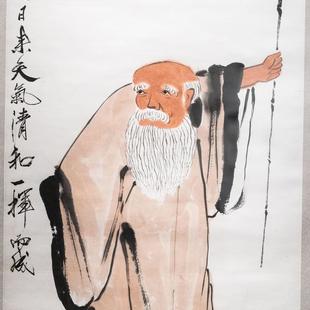 日来天氣清和一揮而成